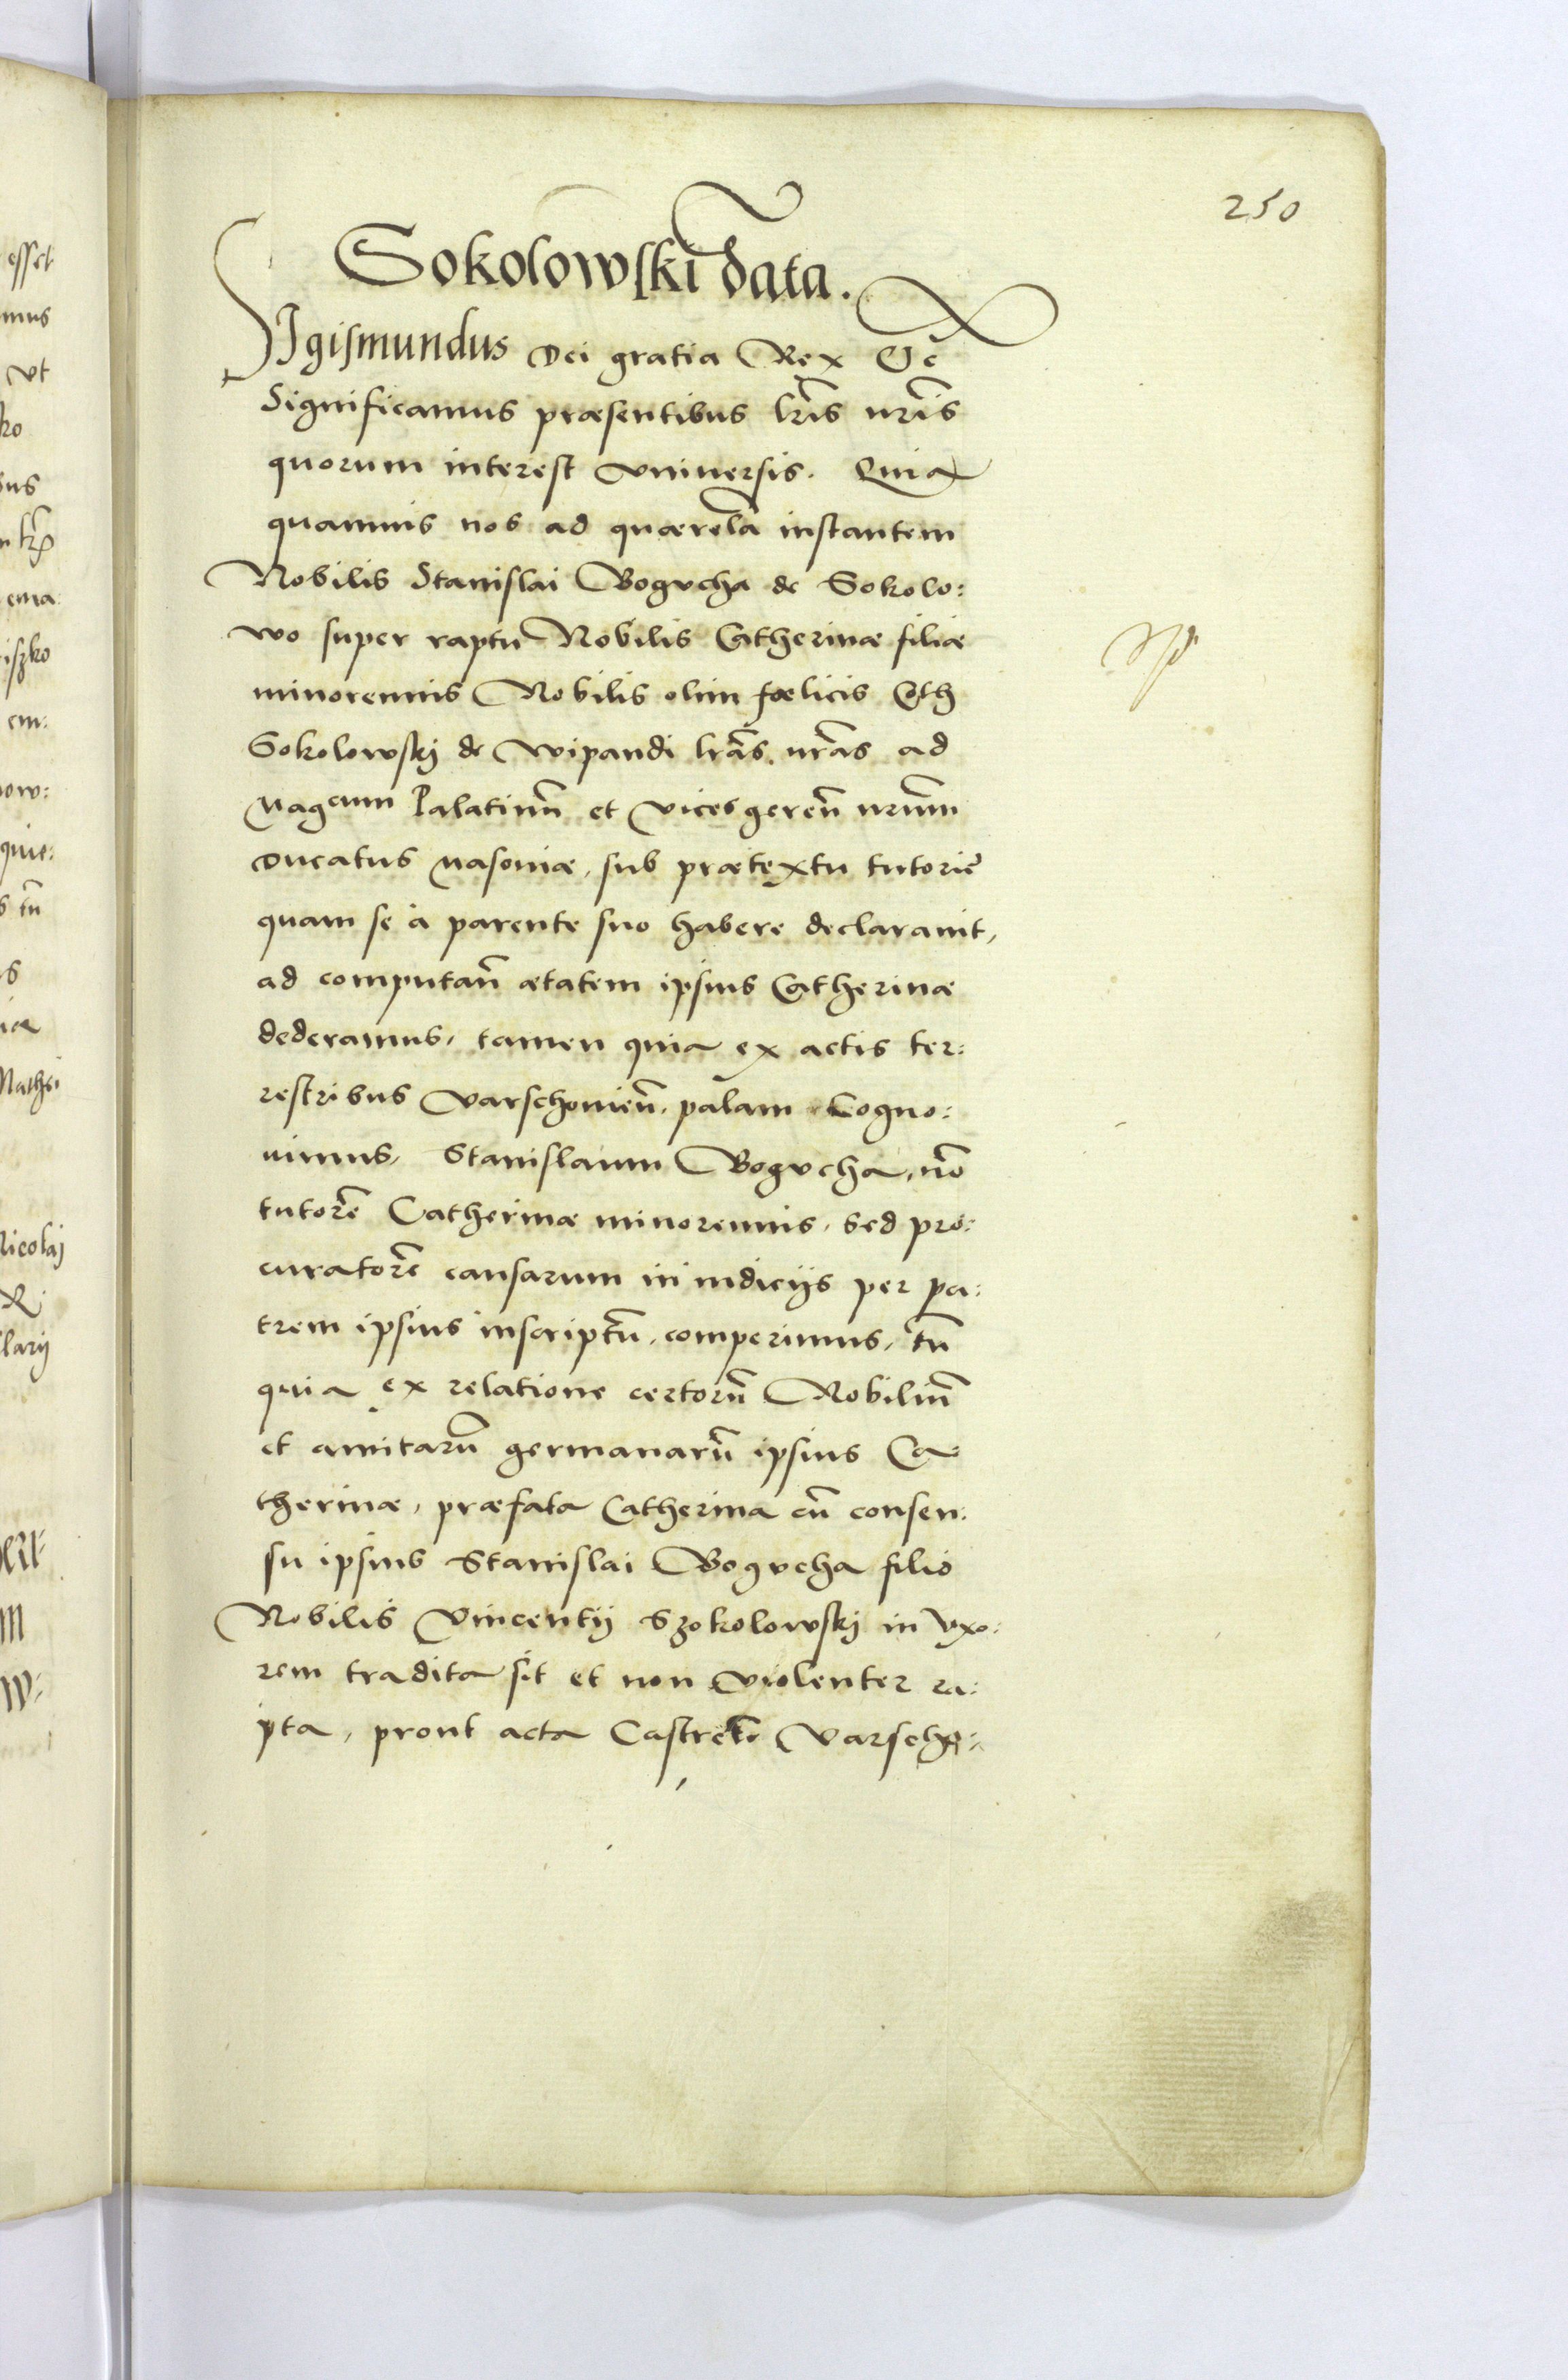 250
Sokolowski data.
SIgismundus Dei gratia Rex &c̃
Significamus præsentibus lr̃is nr̃is
quorum interest vniuersis. Quia
quamuis nos ad quærelã instantem
Nobilis Stanislai Bogucha de Sokolo:
wo super raptu Nobilis Catherinæ filiæ
minorennis Nobilis olim fœlicis
Sokolowskj de Wipandi lr̃as nr̃as ad
Magcum Palatinũ et vices gereñ nrũm
Ducatus Masoniæ, sub prætextu tutoriæ
quam se à parente suo habere declarauit,
ad computañ ætatem ipsius Catherinæ
dederamus, tamen quia ex actis ter:
restribus Varschouieñ. palam Cogno:
uimus, Stanislaum Bogucha, nõ
tutorẽ Catherinæ minorennis, sed pro:
curatorẽ causarum in iudicijs per pa:
trem ipsius inscriptũ, comperimus, tũ
quia ex relatione certorũ Nobiliũ
et amitarũ germanarũ ipsius Ca
therinæ, præfata Catherina cũ consen:
su ipsius Stanislai Bogucha filio
Nobilis Vincentij Szokolowskj in vxo:
rem tradita sit et non violenter ra:
pta, prout acta Castreñ Varscho: